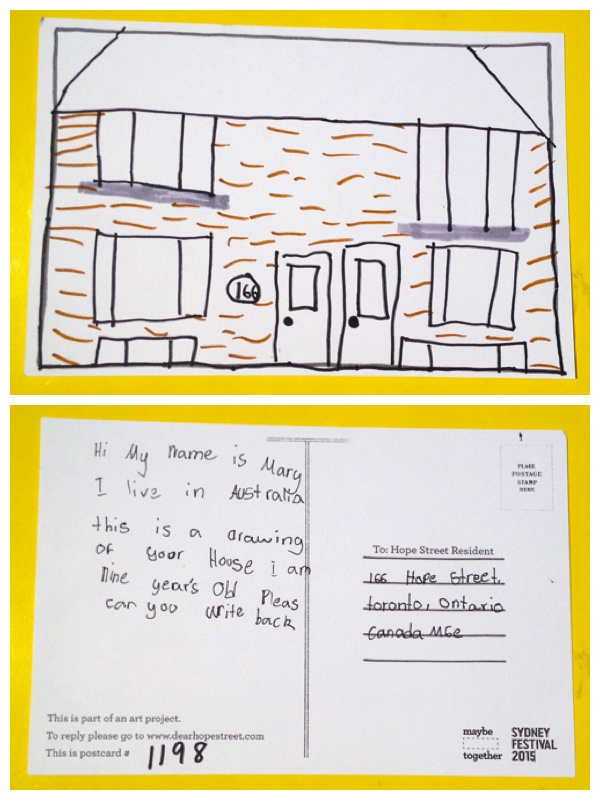 166
Hi My name is Mary
I live in AuStralia
this is a drawing
of your House I am
Nine year's Old Pleas
can you write back
PLACE
POSTAGE
STAMP
HERE
To: Hope Street Resident
166 Hope Street,
toronto, Ontario
Canada M6e
This is part of an art project.
To reply please go to www.dearhopestreet.com
This is postcard # 1198
maybe
together
SYDNEY
FESTIVAL
2015